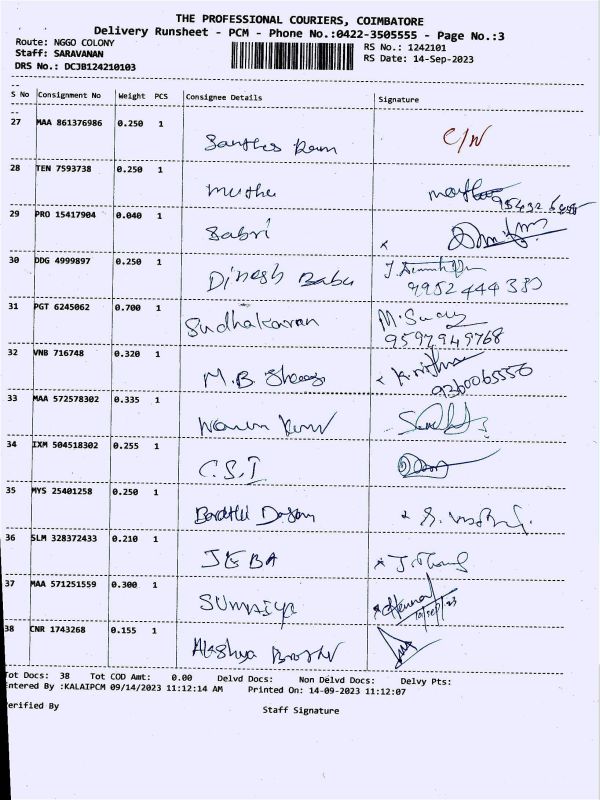 THE PROFESSIONAL COURIERS, COIMBATORE
Delivery Runsheet - PCM - Phone No.:0422-3505555 - Page No.:3
Route: NGGO COLONY RS No.: 1242101
Staff: SARAVANAN RS Date: 14-Sep-2023
DRS No.: DCJB124210103
S No Consignment No Weight PCS Consignee Details Signature
27 MAA 861376986 0.250 1 Santhos Ram C/N
28 TEN 7593738 0.250 1 Muthu
29 PRO 15417904 0.040 1 Sabri x
30 DDG 4999897 0.250 1 Dinesh Babu
9952444380
31 PGT 6245062 0.700 1 Sudhakaran
9597949768
32 VNB 716748 0.320 1 M.B
9360065550
33 MAA 572578302 0.335 1
34 IXM 504518302 0.255 1 C.S.I
35 MYS 25401258 0.250 1
36 SLM 328372433 0.210 1 JEBA
37 MAA 571251559 0.300 1 SUMAIYA
38 CNR 1743268 0.155 1
Tot Docs: 38 Tot COD Amt: 0.00 Delvd Docs: Non Delvd Docs: Delvy Pts:
Entered By :KALAIPCM 09/14/2023 11:12:14 AM Printed On: 14-09-2023 11:12:07
Verified By Staff Signature